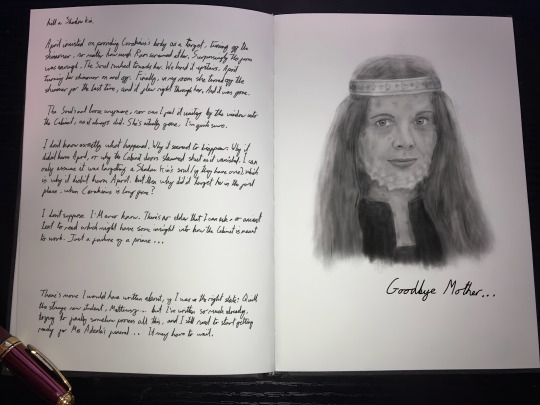 kill a Shadow Kin.
April insisted on providing Corakinus's body as a target, turning off the
shimmer, no matter how much Ram screamed after. Surprisingly the pain
was enough. The Soul rushed towards her. We herd it upstairs, April
turning her shimmer on and off. Finally, in my room she turned off the
shimmer for the last time, and it flew right through her. And it was gone.
The Soul's not loose anymore, nor can I feel it waiting by the window into
the Cabinet, as I always did. She's actually gone, I'm quite sure.
I don't know exactly what happened. Why it seemed to disappear. Why it
didn't harm April, or why the Cabinet doors slammed shut and vanished. I can
only assume it was targeting a Shadow Kin's soul (if they have ones) which
is why it didn't harm April, but then why did it target her in the first
place, when Corakinus is long gone?
I don't suppose I'll ever know. There's no elder that I can ask or ancient
text to read which might have some insight into how the Cabinet is meant
to work. Just a picture of a prince...
There's more I would have written about, if I was in the right state: Quill,
the strange new student, Matteusz... but I've written so much already,
trying to finally somehow process all this, and I still need to start getting
ready for Ms Ademola's funeral... It may have to wait.
Goodbye Mother...